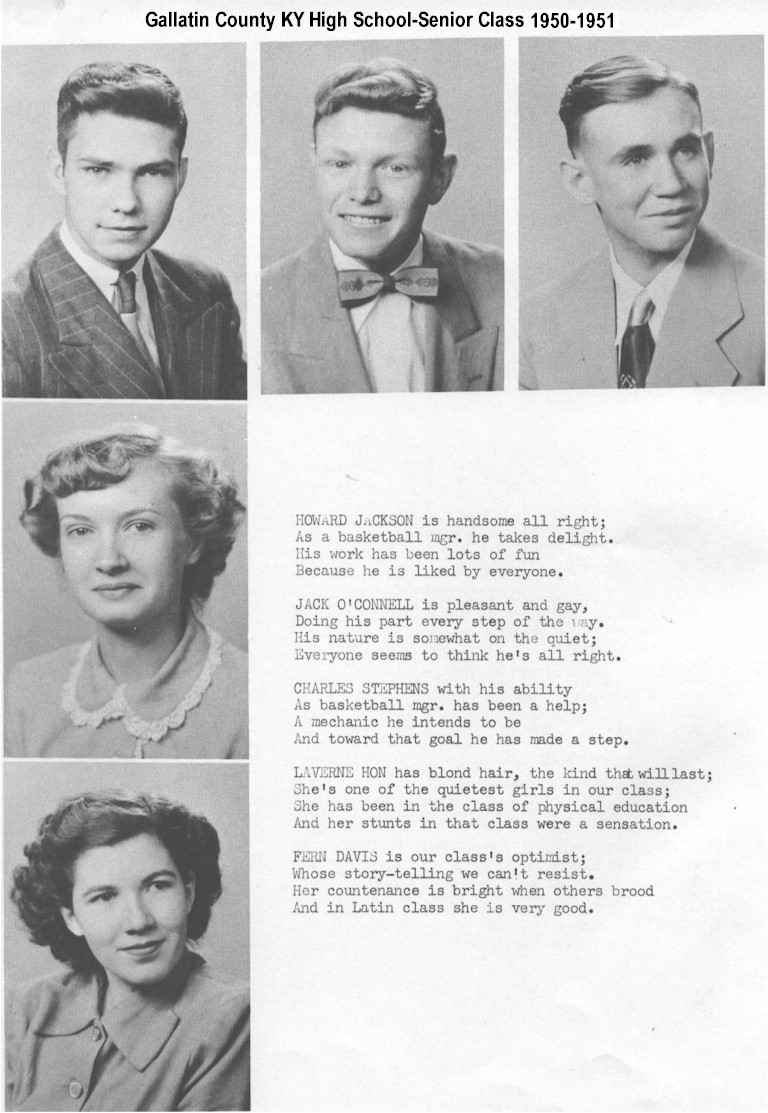 Gallatin County KY High School-Senior Class 1950-1951
HOWARD JACKSON is handsome all right;
As a basketball mgr. he takes delight.
His work has been lots of fun
Because he is liked by everyone.
JACK O'CONNELL is pleasant and gay,
Doing his part every step of the way.
His nature is somewhat on the quiet;
Everyone seems to think he's all right.
CHARLES STEPHENS with his ability
As basketball mgr. has been a help;
A mechanic he intends to be
And toward that goal he has made a step.
LAVERNE HON has blond hair, the kind that will last;
She's one of the quietest girls in our class;
She has been in the class of physical education
And her stunts in that class were a sensation.
FERN DAVIS is our class's optimist;
Whose story-telling we can't resist.
Her countenance is bright when others brood
And in Latin class she is very good.